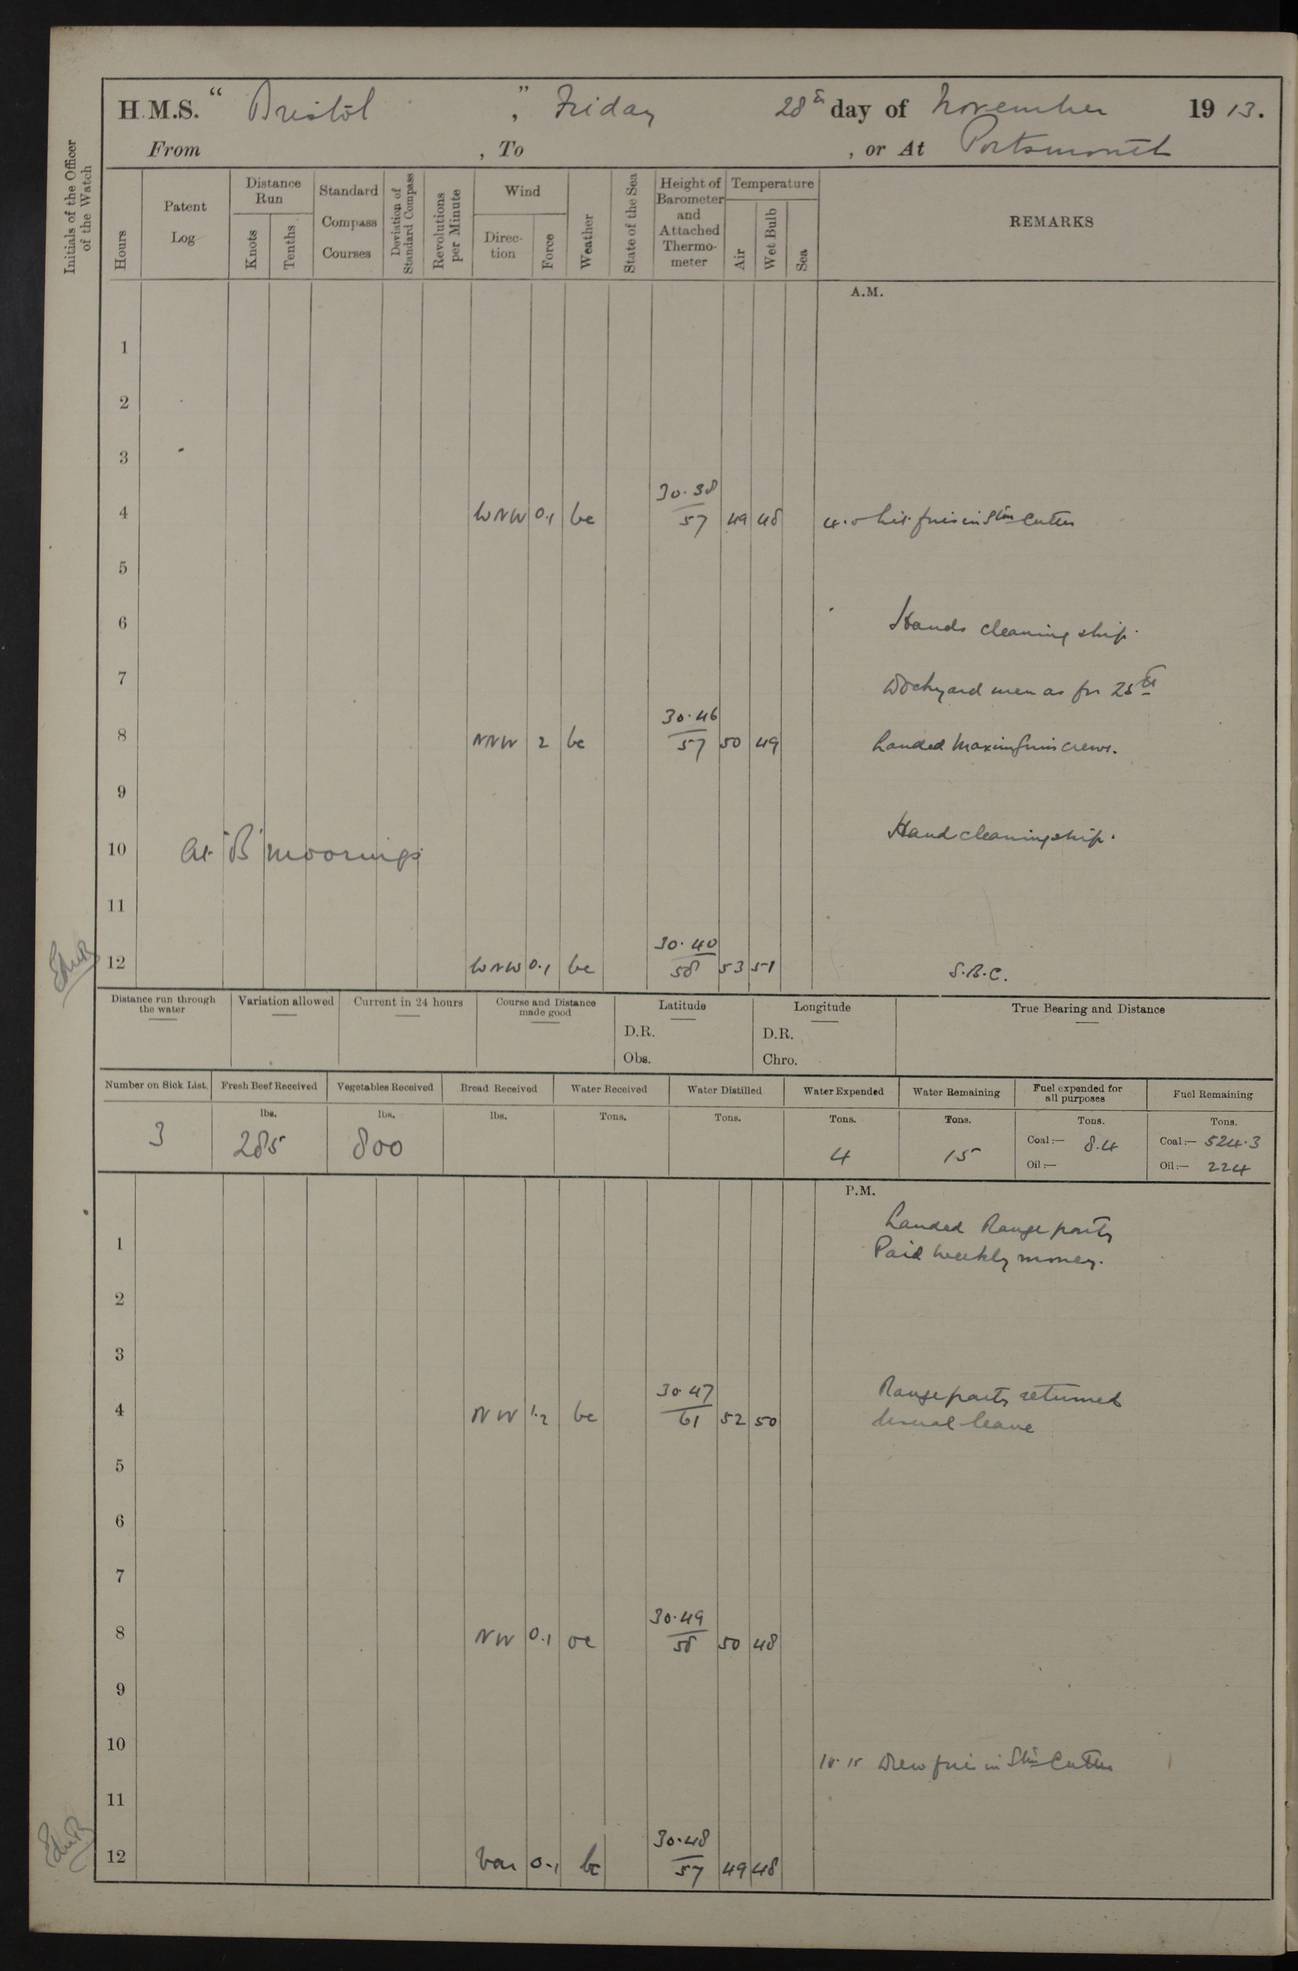 H.M.S. “ Bristol ” , Friday 28th day of November 1913.
From , To , or At Portsmouth
Initials of the Officer of the Watch
Hours
Patent Log
Distance Run
Knots
Tenths
Standard Compass Courses
Deviation of Standard Compass
Revolutions per Minute
Wind
Direction
Force
Weather
State of the Sea
Height of Barometer and Attached Thermometer
Temperature
Air
Wet Bulb
Sea
REMARKS
A.M.
1
2
3
4 WNW 0.1 bc 30.38 57 49 48 4.0 Lit fires in Stm Cutter
5
6 Hands cleaning ship.
7 Dockyard men as for 25th
8 NNW 2 bc 30.46 57 50 49 Landed Maxim Guns crews.
9
10 At 'B' moorings Hands cleaning ship.
11
12 WNW 0.1 bc 30.40 58 53 51 S.B.C.
Distance run through the water
Variation allowed
Current in 24 hours
Course and Distance made good
Latitude
D.R.
Obs.
Longitude
D.R.
Chro.
True Bearing and Distance
Number on Sick List. Fresh Beef Received Vegetables Received Bread Received Water Received Water Distilled Water Expended Water Remaining Fuel expended for all purposes Fuel Remaining
lbs. lbs. lbs. Tons. Tons. Tons. Tons. Tons. Tons.
3 285 800 4 15 Coal:— 8.4 Coal:— 524.3
Oil:— Oil:— 224
P.M.
Landed Range party
1 Paid weekly money.
2
3
Range party returned
4 NW 1.2 bc 30.47 61 52 50 Usual leave
5
6
7
8 NW 0.1 oc 30.49 58 50 48
9
10 10.15 Drew fires in Stm Cutter
11
12 Var 0.1 bc 30.48 57 49 48